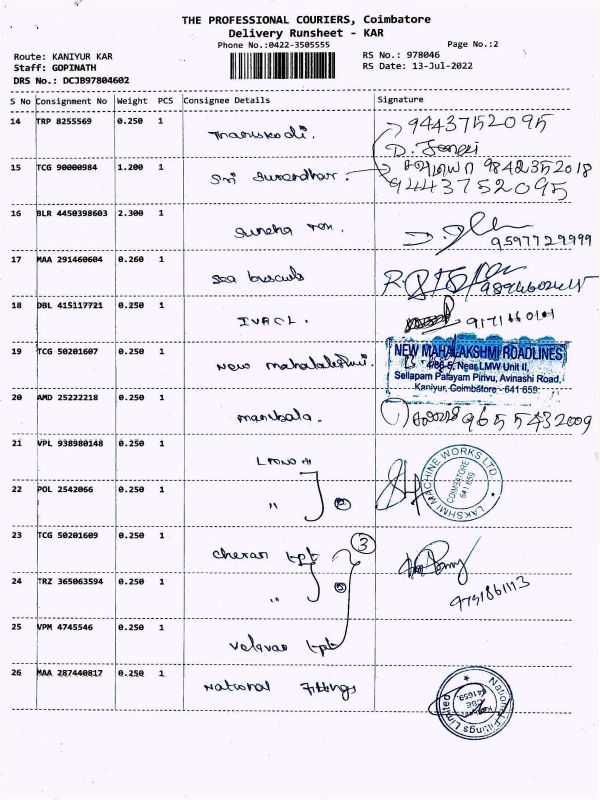 THE PROFESSIONAL COURIERS, Coimbatore
Delivery Runsheet - KAR
Phone No.:0422-3505555
Page No.:2
Route: KANIYUR KAR
RS No.: 978046
Staff: GOPINATH
RS Date: 13-Jul-2022
DRS No.: DCJB97804602
S No Consignment No Weight PCS Consignee Details Signature
14 TRP 8255569 0.250 1 9443752095
15 TCG 90000984 1.200 1 Sri 9842352018
9443752095
16 BLR 4450398603 2.300 1 9597729999
17 MAA 291460604 0.260 1
18 DBL 415117721 0.250 1
19 TCG 50201607 0.250 1 New Mahalakshmi. NEW MAHALAKSHMI ROADLINES
4/86-5, Near LMW Unit II,
Sellapam Palayam Pirivu, Avinashi Road,
Kaniyur, Coimbatore - 641 659.
20 AMD 25222218 0.250 1 Manibala. 9655432009
21 VPL 938980148 0.250 1 LAKSHMI MACHINE WORKS LTD.
COIMBATORE
641 659
22 POL 2542066 0.250 1 "
23 TCG 50201609 0.250 1 Cheran tpt 3
24 TRZ 365063594 0.250 1 " 9791861113
25 VPM 4745546 0.250 1 Velavan tpt
26 MAA 287440817 0.250 1 National Fittings National Fittings Limited